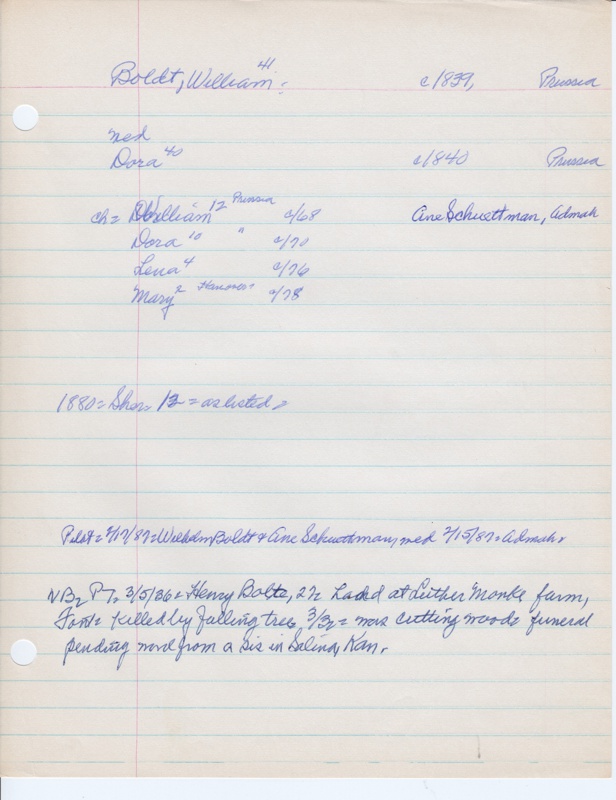 Boldt, William 41 c1839, Prussia
med
Dora 40 c1840 Prussia
ch= William 12 Prussia c/68 Ane Schuettman, Admah
Dora 10 " c/70
Lena 4 c/76
Mary 2 Hanover c/78
1880= 12= as listed=
Pilot= 2/17/87= Wilhelm Boldt & Ane Schuettman, med 2/15/87= Admah.
3/5/36= Henry Boltz, at Luther Monke farm,
Font= Killed by falling tree, 3/3= was cutting wood= funeral
pending word from a sis in Salina, Kan.